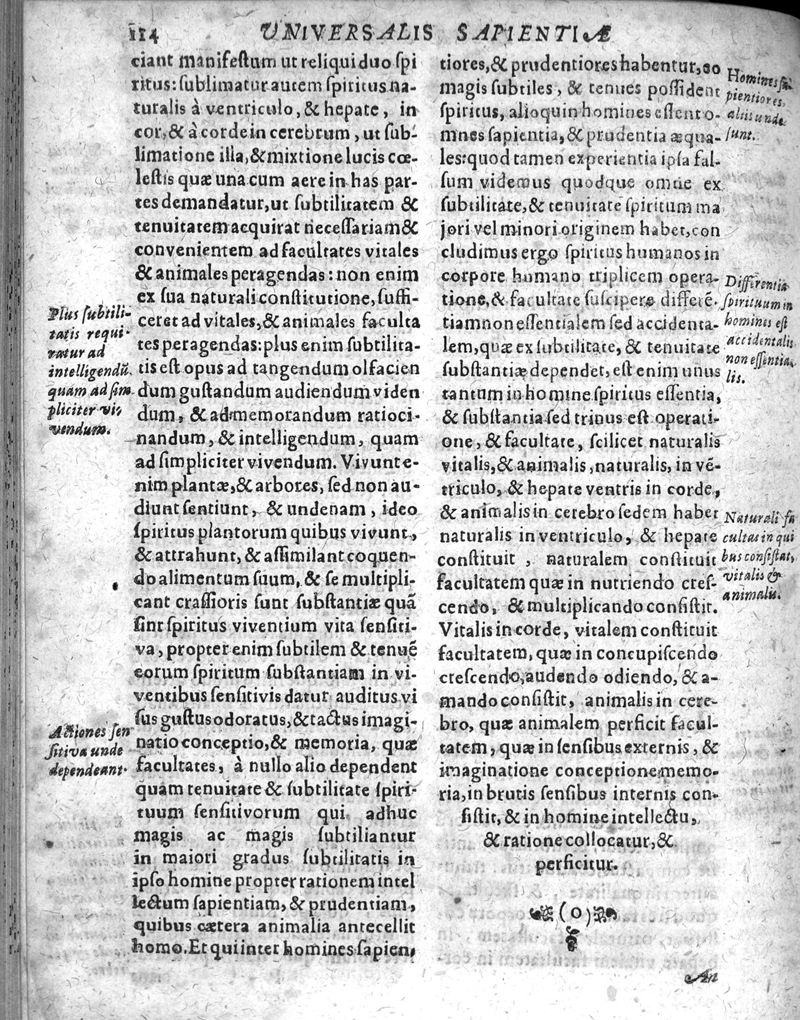 114 UNIVERSALIS SAPIENTIÆ
ciant manifeſtum ut reliqui duo ſpi
ritus: ſublimatur autem ſpiritus na-
turalis à ventriculo, & hepate, in
cor, & à corde in cerebrum, ut ſub-
limatione illa, & mixtione lucis cœ-
leſtis quæ una cum aere in has par-
tes demandatur, ut ſubtilitatem &
tenuitatem acquirat neceſſariam &
convenientem ad facultates vitales
& animales peragendas: non enim
ex ſua naturali conſtitutione, ſuffi-
ceret ad vitales, & animales faculta
tes peragendas: plus enim ſubtilita-
tis eſt opus ad tangendum olfacien
dum guſtandum audiendum viden
dum, & ad memorandum ratioci-
nandum, & intelligendum, quam
ad ſimpliciter vivendum. Vivunt e-
nim plantæ, & arbores, ſed non au-
diunt ſentiunt, & undenam, ideo
ſpiritus plantorum quibus vivunt,
& attrahunt, & aſſimilant coquen-
do alimentum ſuum, & ſe multipli-
cant craſſioris ſunt ſubſtantiæ quã
ſint ſpiritus viventium vita ſenſiti-
va, propter enim ſubtilem & tenuẽ
eorum ſpirituum ſubſtantiam in vi-
ventibus ſenſitivis datur auditus vi
ſus guſtus odoratus, & tactus imagi-
natio conceptio, & memoria, quæ
facultates, à nullo alio dependent
quàm tenuitate & ſubtilitate ſpiri-
tuum ſenſitivorum qui adhuc
magis ac magis ſubtiliantur
in maiori gradus ſubtilitatis in
ipſo homine propter rationem intel
lectum ſapientiam, & prudentiam,
quibus cætera animalia antecellit
homo. Et qui inter homines ſapien,
Plus ſubtili-
tatis requi-
ratur ad
intelligendũ.
quam ad ſim
pliciter vi-
vendum.
Actiones ſen
ſitiva unde
dependeant.
tiores, & prudentiores habentur, eo
magis ſubtiles, & tenues poſſident
ſpiritus, alioquin homines eſſent o-
mnes ſapientia, & prudentia æqua-
les: quod tamen experientia ipſa fal-
ſum videmus quodque omne ex
ſubtilitate, & tenuitate ſpirituum ma
jori vel minori originem habet, con
cludimus ergo ſpiritus humanos in
corpore humano triplicem opera-
tione, & facultate ſuſcipere differẽ-
tiam non eſſentialem ſed accidenta-
lem, quæ ex ſubtilitate, & tenuitate
ſubſtantiæ dependet, eſt enim unus
tantum in homine ſpiritus eſſentia,
& ſubſtantia ſed trinus eſt operati-
one, & facultate, ſcilicet naturalis
vitalis, & animalis, naturalis, in vẽ-
triculo, & hepate ventris in corde,
& animalis in cerebro ſedem habet
naturalis in ventriculo, & hepate
conſtituit, naturalem conſtituit
facultatem quæ in nutriendo creſ-
cendo, & multiplicando conſiſtit.
Vitalis in corde, vitalem conſtituit
facultatem, quæ in concupiſcendo
creſcendo, audendo odiendo, & a-
mando conſiſtit, animalis in cere-
bro, quæ animalem perficit facul-
tatem, quæ in ſenſibus externis, &
imaginatione conceptione memo-
ria, in brutis ſenſibus internis con-
ſiſtit, & in homine intellectu,
& ratione collocatur, &
perficitur.
(o)
An
Homines ſa
pientiores
aliis unde
ſunt.
Differentia
ſpirituum in
homines eſt
accidentalis
non eſſentia
lis.
Naturali fa
cultas in qui
bus conſiſtat,
vitalis &
animalis.